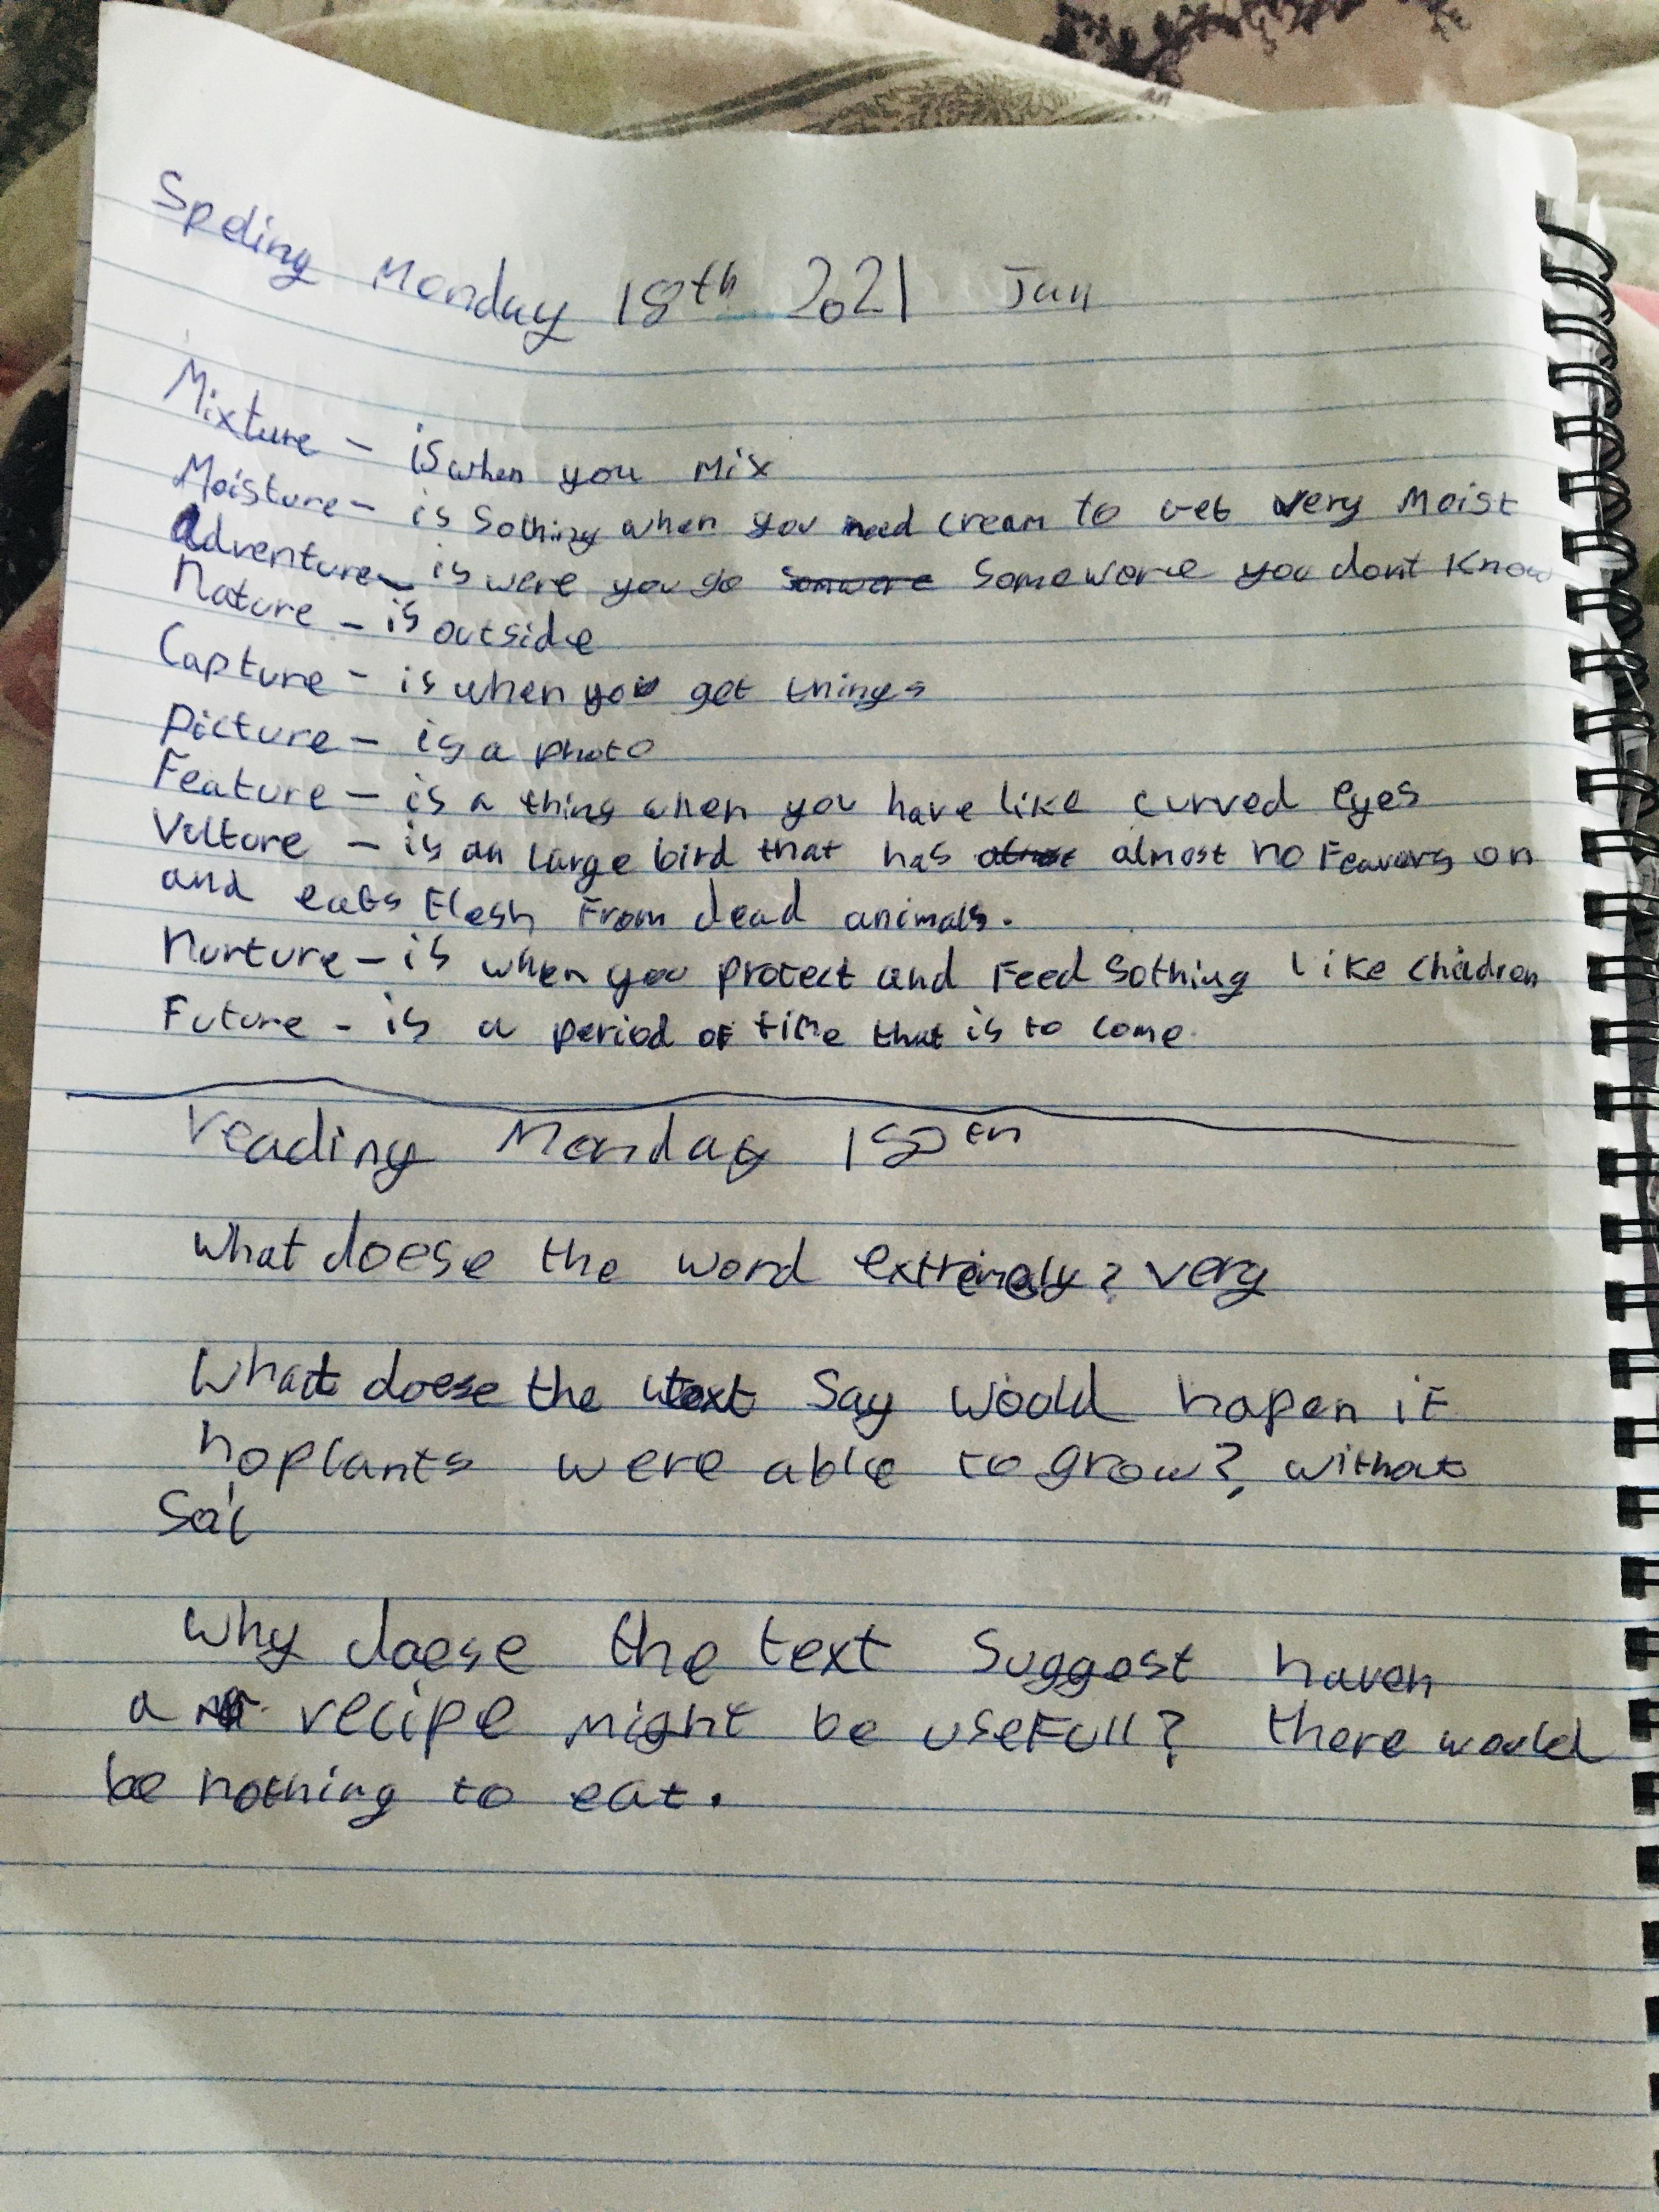 Speling Monday 18th 2021 Jan
Mixture - is when you mix
Moisture - is Sothing when you need cream to get very Moist
Adventure - is were you go somwore Someware you dont know
Nature - is outside
Capture - is when you get things
Picture - is a photo
Feature - is a thing when you have like curved eyes
Vulture - is an large bird that has almost no Feavers on
and eats flesh From dead animals.
Nurture - is when you protect and Feed Sothing like children
Future - is a period of time that is to come.
reading Monday 18th
What doese the word extremely? very
What doese the text Say woold hapen if
no plants were able to grow?, without
Soil
Why doese the text Suggest haven
a recipe might be useFull? there would
be nothing to eat.